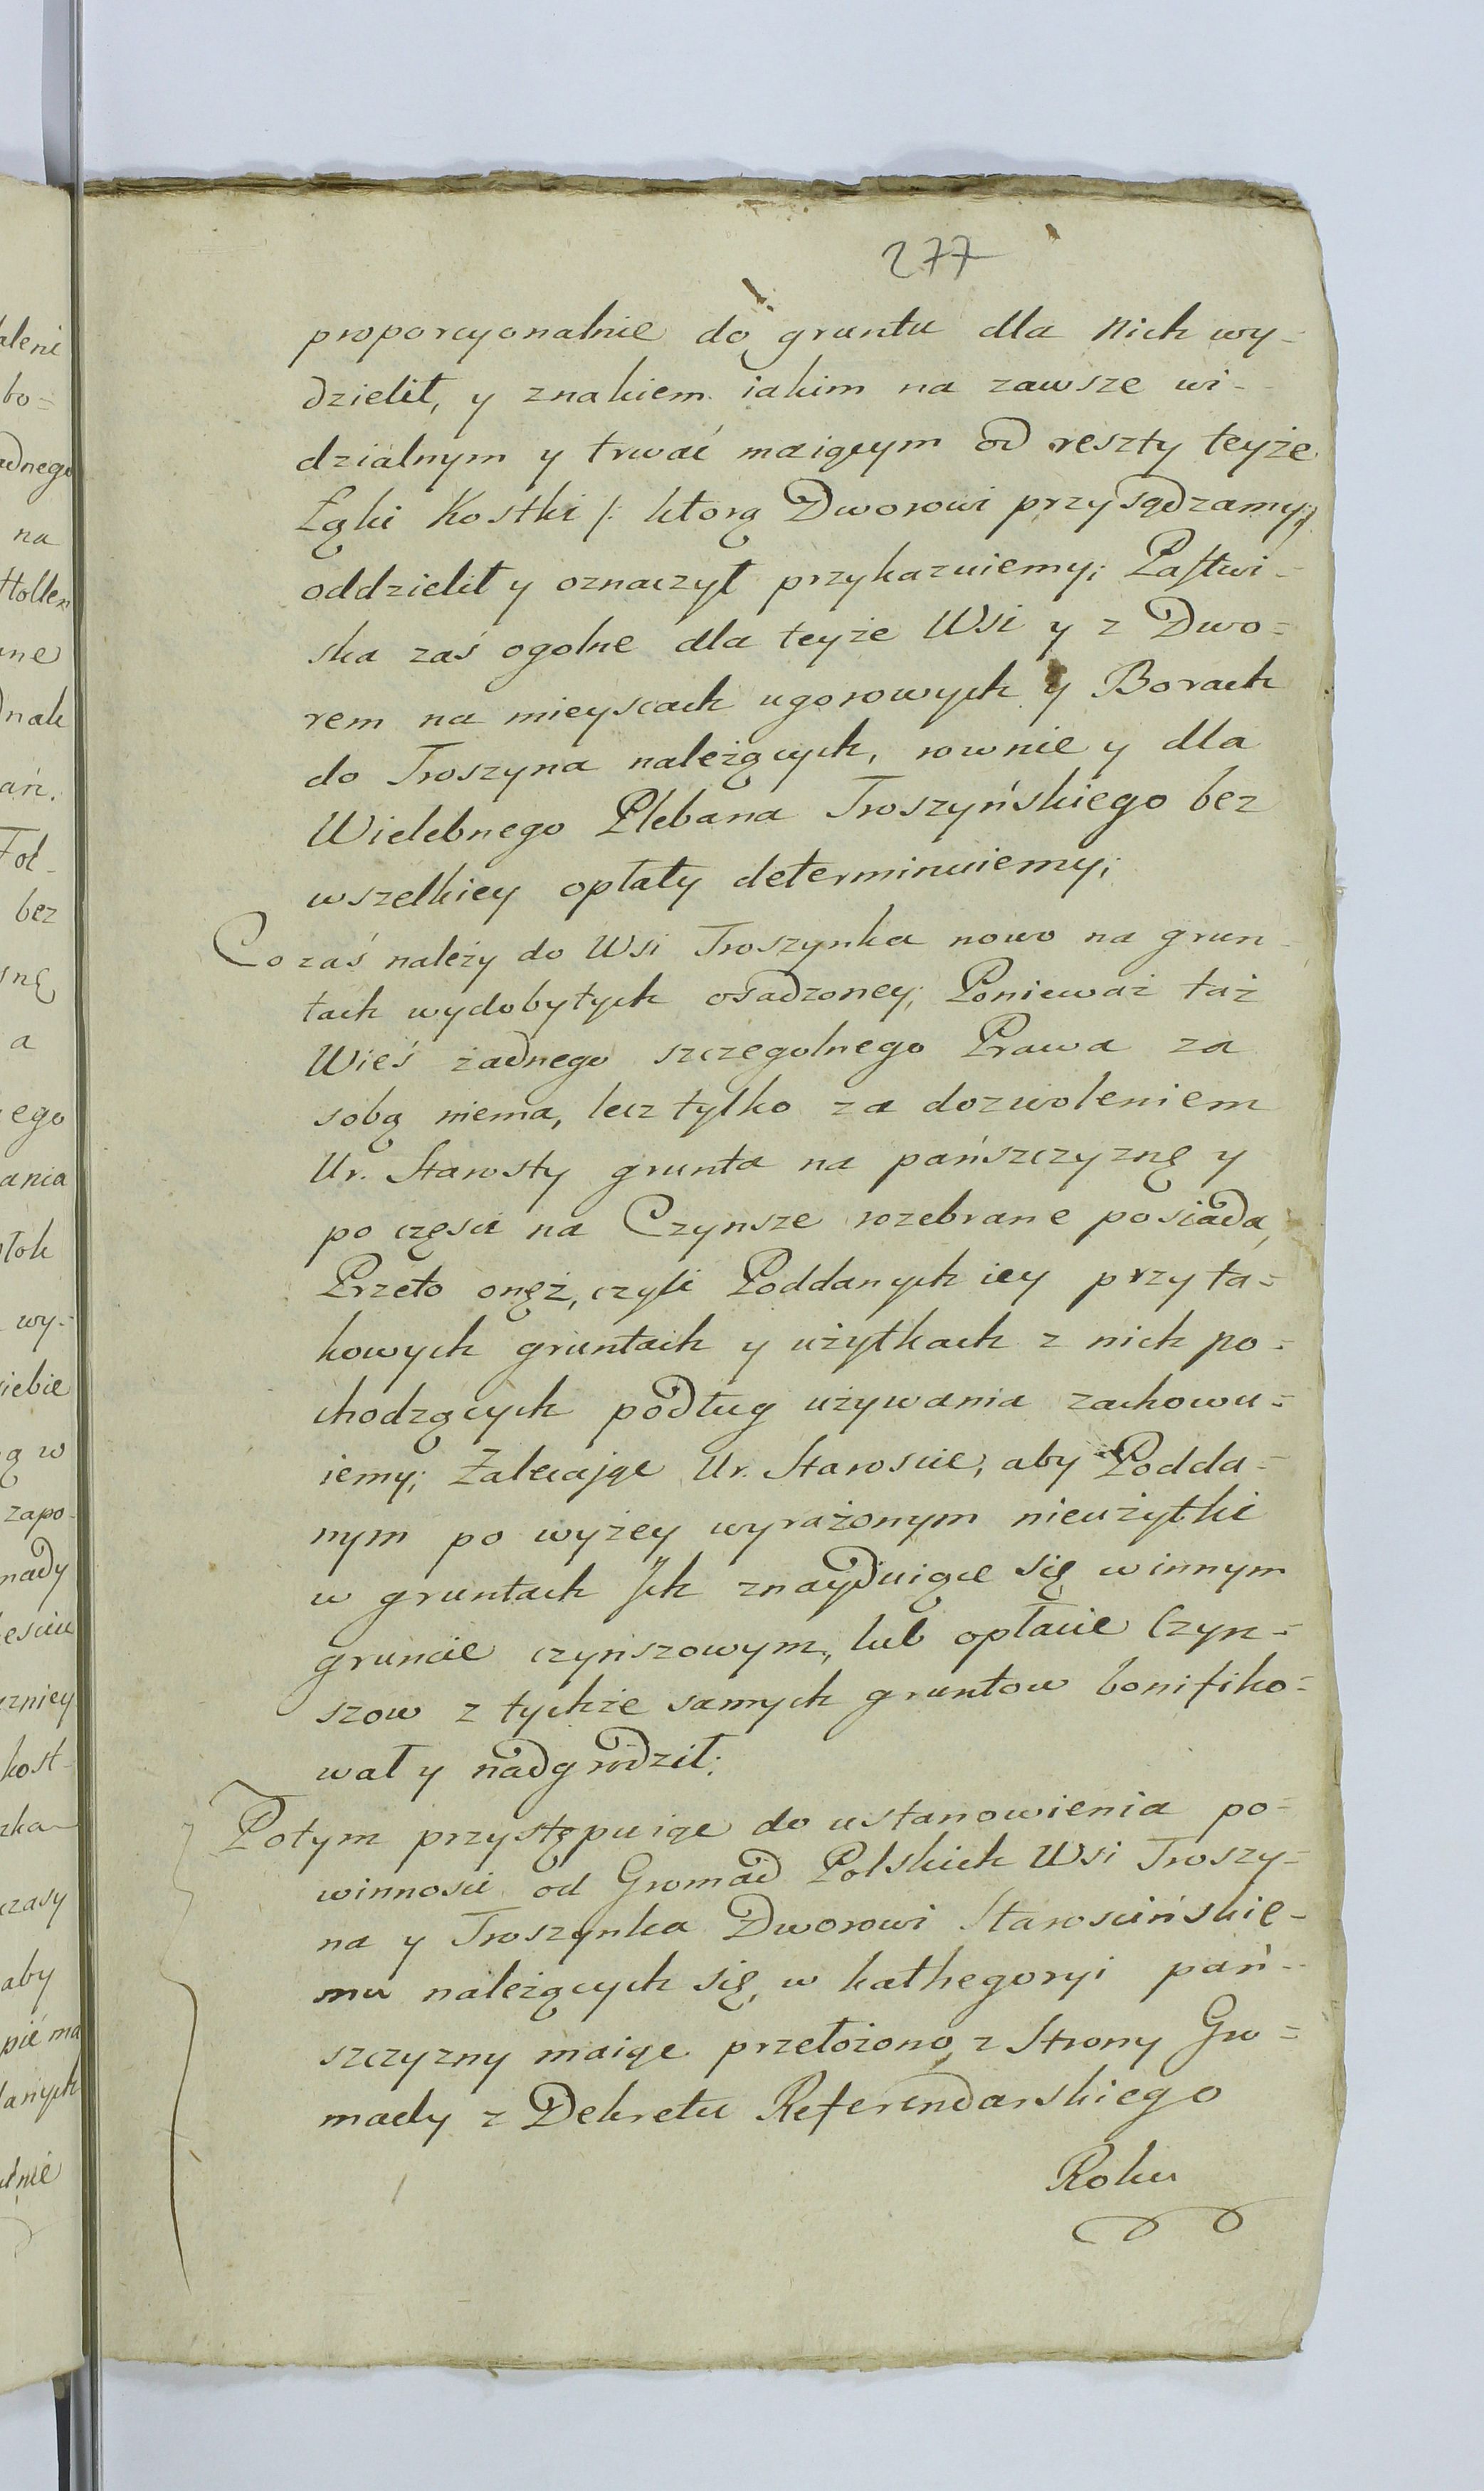 277
proporcyonalnie do gruntu dla Nich wy-
dzielił, y znakiem iakim na zawsze wi-
dzialnym y trwać maiącym od reszty teyże
Łąki Kostki /: ktorą Dworowi przysądzamy:/
oddzielił y oznaczył przykazuiemy; Pastwi-
ska zaś ogolne dla teyże Wsi y z Dwo=
rem na mieyscach ugorowych y Borach
do Troszyna należących, rownie y dla
Wielebnego Plebana Troszyńskiego bez
wszelkiey opłaty determinuiemy;
Co zaś należy do Wsi Troszynka nowo na grun-
tach wydobytych osadzoney; Ponieważ taż
Wieś żadnego szczegolnego Prawa za
sobą niema, lecz tylko za dozwoleniem
Ur. Starosty grunta na pańszczyznę y
po części na Czynsze rozebrane posiada,
Przeto onęż, czyli Poddanych iey przy ta=
kowych gruntach y użytkach z nich po=
chodzących podług używania zachowu=
iemy; Zalecając Ur. Staroscie, aby Podda=
nym po wyżey wyrażonym nieużytki
w gruntach Jch znayduiące się w innym
gruncie czynszowym, lub opłacie Czyn=
szow z tychże samych gruntow bonifiko=
wał y nadgrodził;
Potym przystępuiąc do ustanowienia po=
winności od Gromad Polskich Wsi Troszy=
na y Troszynka Dworowi Starościńskie-
mu należących się, w kathegoryi pań-
szczyzny maiąc przełożono z Strony Gro=
mady z Dekretu Referendarskiego
Roku